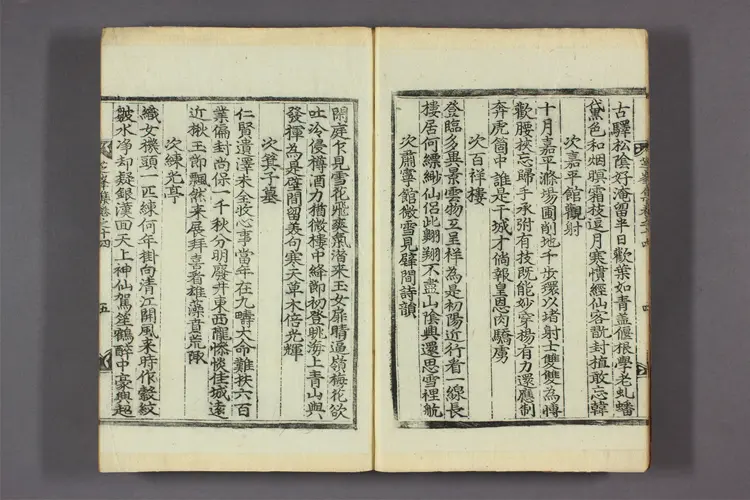 古驛松陰好淹留半日歡葉如青蓋偃根學老虬蟠
黛色和烟暝霜枝逗月寒慣經仙客翫封植敢忘韓
次嘉平館觀射
十月嘉平滌場圃削地千步環以堵射士雙雙為耦
歡腰挾忘歸手承拊有技既能妙穿楊有力還應制
奔虎箇中誰是干城才倘報皇恩肉驕虜
次百祥樓
登臨多異景雲物互呈样為是初陽近行看一線長
樓居何縹緲仙侶此翺翔不盡山陰興還思雪裡航
次肅寧館微雪見壁間詩韻
閑庭乍見雪花飛爽氣潜来玉女扉晴逼嶺梅花欲
吐冷侵樽酒力猶微樓中絳節初登眺海上青山與
發揮為是壁間留羙句寒天草木倍光輝
次箕子墓
仁賢遺澤未全收心事當年在九疇大命難扶六百
業偏封尚保一千秋分明廢井東西隴惨惔佳城遠
近楸玉節飄然来展拜喜看雄藻賁荒陬
次練光亭
織女機頭一匹練何年掛向清江開風来時作縠紋
皴水净却疑銀漢回天上神仙駕笙鶴醉中豪興超
五